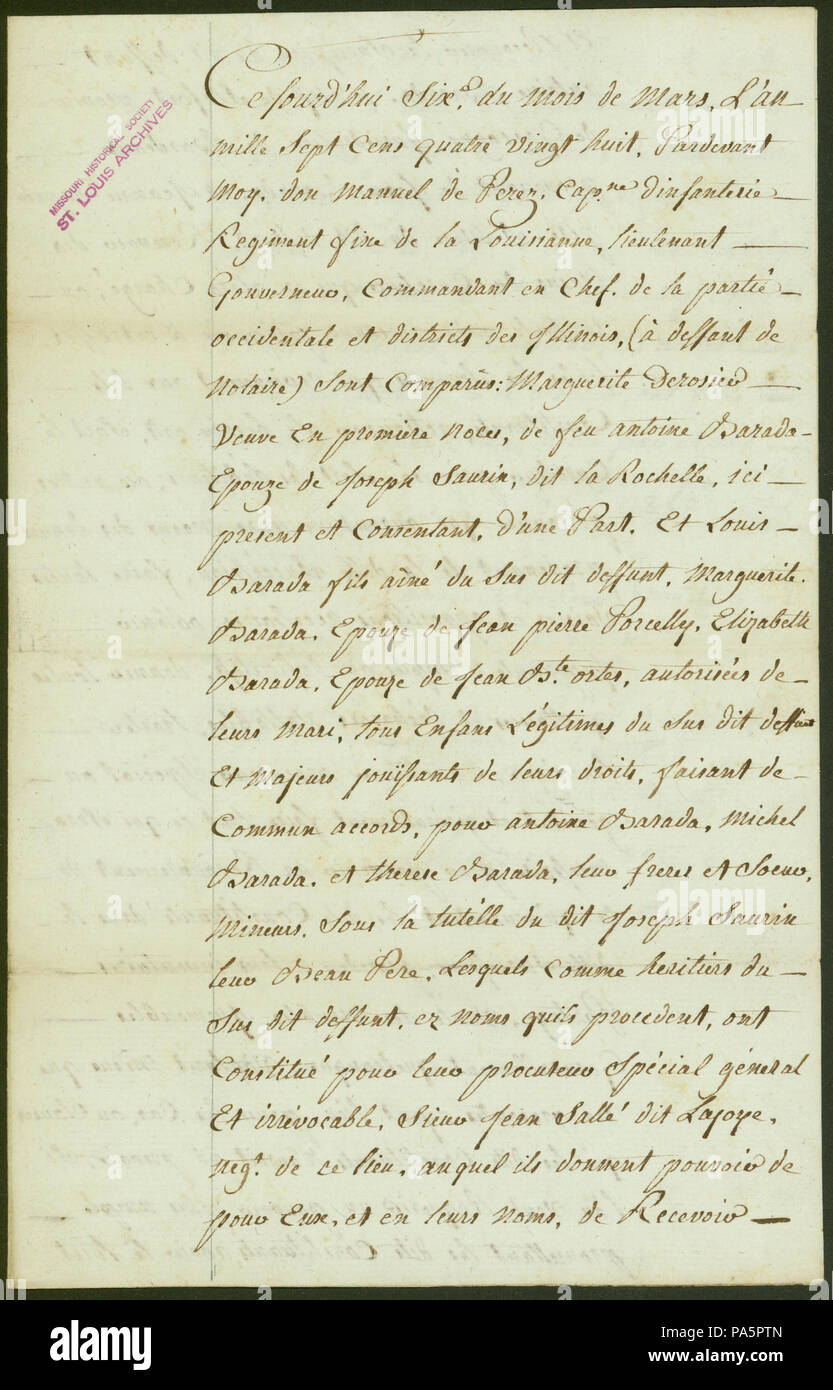 MISSOURI HISTORICAL SOCIETY
ST. LOUIS ARCHIVES
Ce Jourd'hui Sixe. du mois de Mars, L'an
mille Sept Cens quatre Vingt huit, Pardevant
Moy, don Manuel de Perez, Capne d'infanterie
Regiment fixe de la Louisianne, lieutenant
Gouverneur, Commandant en Chef. de la partie
occidentale et districts des Illinois, (à deffaut de
Notaire) Sont Comparûs: Marguerite Derosier
Veuve En première Noces, de feu antoine Barada
Epouze de Joseph Taurin, dit la Rochelle, ici
present et Consentant, d'une Part. Et Louis
Barada fils aîné du Sus dit deffunt, Marguerite
Barada, Epouze de Jean pierre Porcelly, Elizabeth
Barada, Epouze de Jean Bte. ortes, autorisées de
leurs Mari, tous Enfans Légitimes du Sus dit deffunt
Et Majeurs jouissants de leurs droits, faisant de
Commun accords, pour antoine Barada, Michel
Barada, et therese Barada, leur freres et Soeur,
Mineurs, Sous la tutélle du dit Joseph Taurin
leur Beau Pere, Lesquels Comme heritiers du
Sus dit deffunt, ez noms quils procedent, ont
Constitué pour leur procureur Spécial général
Et irrévocable, Sieur Jean Sallé dit Lajoye,
Negt. de ce lieu, auquel ils donnent pouvoir de
pour Eux, et en leurs Noms, de Recevoir
alamy
alamy
alamy
Image ID: PA5PTN
www.alamy.com